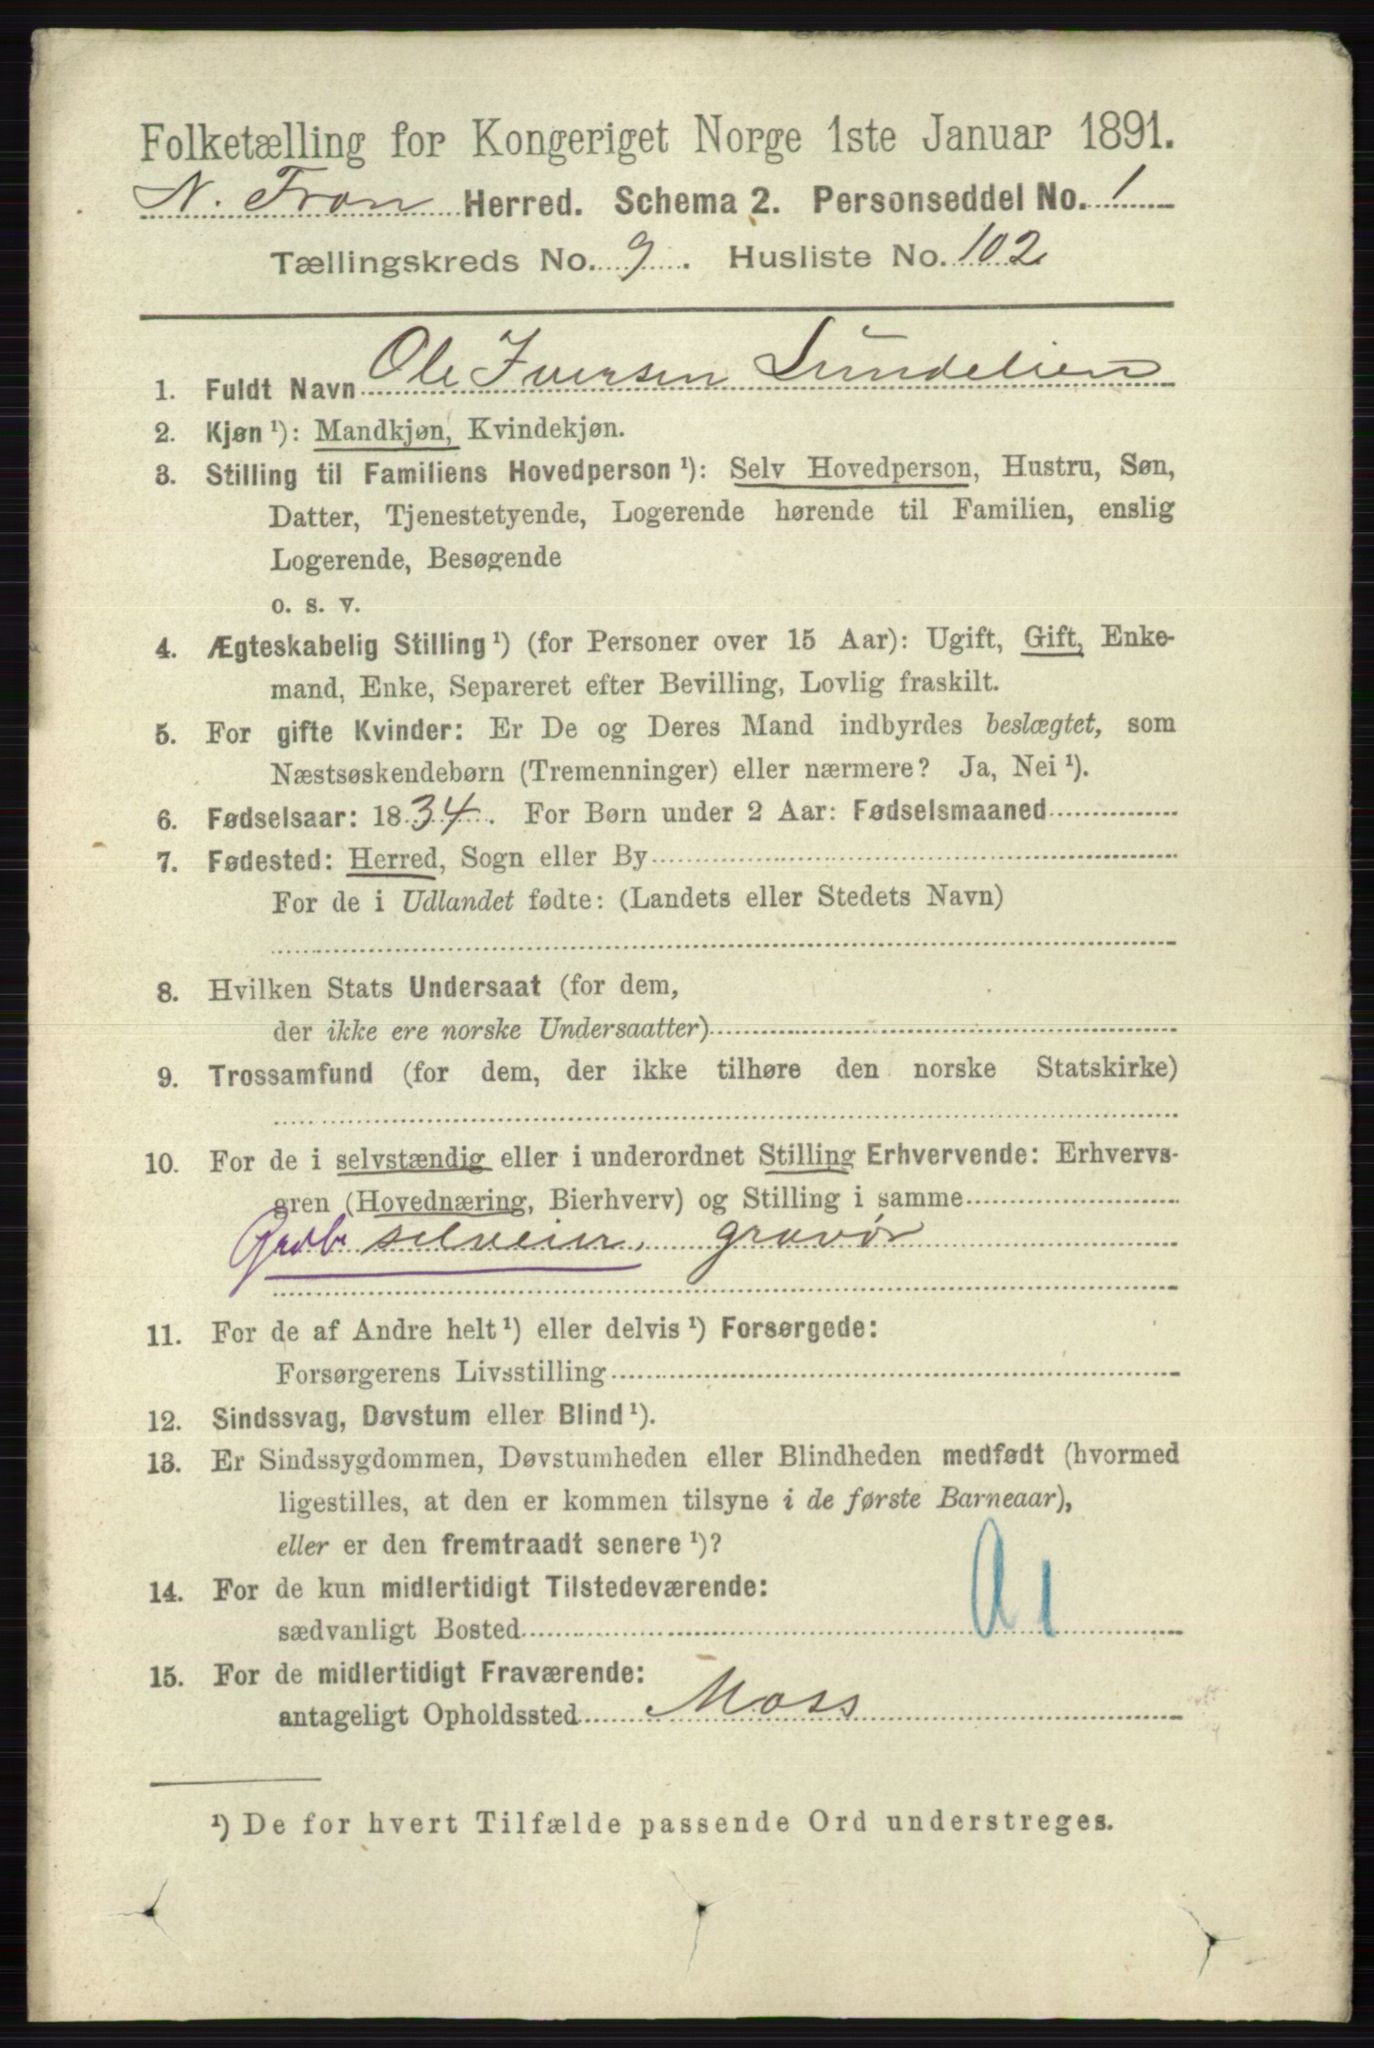 Folketælling for Kongeriget Norge 1ste Januar 1891.
N. Fron Herred. Schema 2. Personseddel No. 1
Tællingskreds No. 9. Husliste No. 102
1. Fuldt Navn Ole Iversen Lundelien
2. Kjøn ¹): Mandkjøn, Kvindekjøn.
3. Stilling til Familiens Hovedperson ¹): Selv Hovedperson, Hustru, Søn,
Datter, Tjenestetyende, Logerende hørende til Familien, enslig
Logerende, Besøgende
o. s. v.
4. Ægteskabelig Stilling ¹) (for Personer over 15 Aar): Ugift, Gift, Enke-
mand, Enke, Separeret efter Bevilling, Lovlig fraskilt.
5. For gifte Kvinder: Er De og Deres Mand indbyrdes beslægtet, som
Næstsøskendebørn (Tremenninger) eller nærmere? Ja, Nei ¹).
6. Fødselsaar: 1834. For Børn under 2 Aar: Fødselsmaaned
7. Fødested: Herred, Sogn eller By
For de i Udlandet fødte: (Landets eller Stedets Navn)
8. Hvilken Stats Undersaat (for dem,
der ikke ere norske Undersaatter)
9. Trossamfund (for dem, der ikke tilhøre den norske Statskirke)
10. For de i selvstændig eller i underordnet Stilling Erhvervende: Erhvervs-
gren (Hovednæring, Bierhverv) og Stilling i samme
selveier, gravør
11. For de af Andre helt ¹) eller delvis ¹) Forsørgede:
Forsørgerens Livsstilling
12. Sindssvag, Døvstum eller Blind ¹).
13. Er Sindssygdommen, Døvstumheden eller Blindheden medfødt (hvormed
ligestilles, at den er kommen tilsyne i de første Barneaar),
eller er den fremtraadt senere ¹)?
14. For de kun midlertidigt Tilstedeværende:
sædvanligt Bosted
15. For de midlertidigt Fraværende:
antageligt Opholdssted Moss
¹) De for hvert Tilfælde passende Ord understreges.